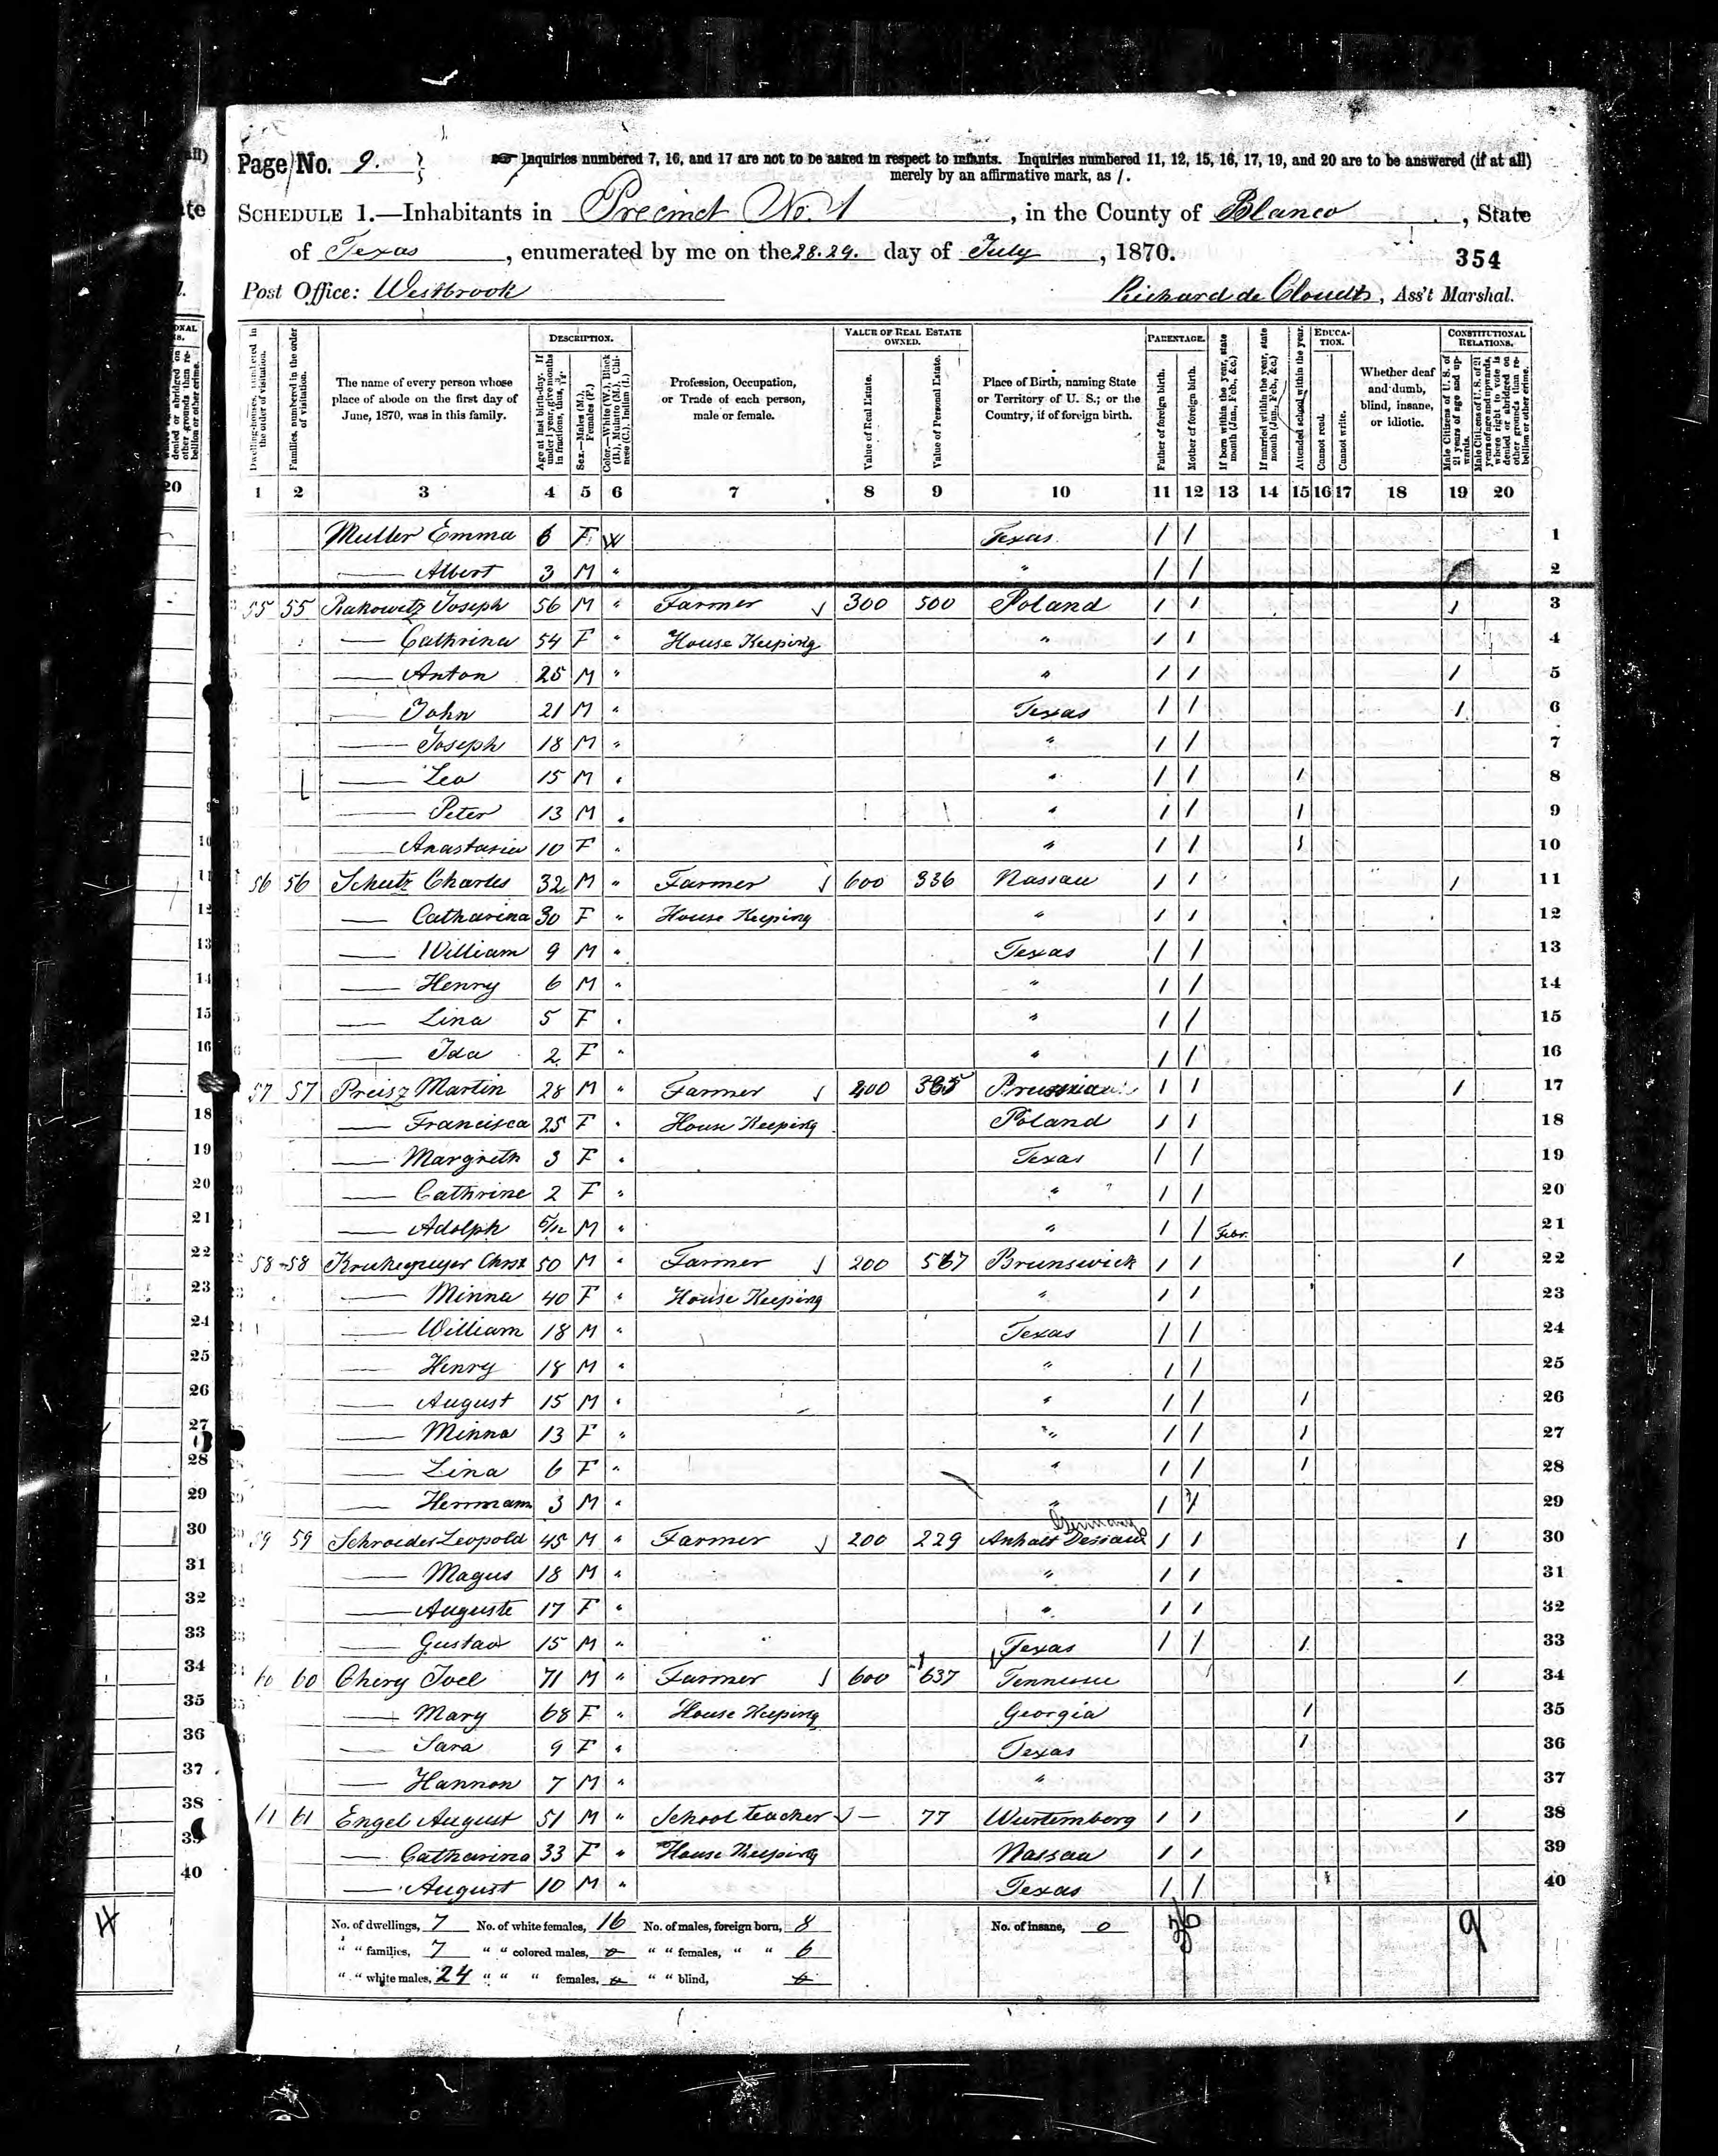 Page No. 9.
Inquiries numbered 7, 16, and 17 are not to be asked in respect to infants. Inquiries numbered 11, 12, 15, 16, 17, 19, and 20 are to be answered (if at all)
merely by an affirmative mark, as /.
SCHEDULE 1.—Inhabitants in Precinct No. 1, in the County of Blanco, State
of Texas, enumerated by me on the 28.29. day of July, 1870.
354
Post Office: Westbrook
Richard de Cloudt, Ass't Marshal.
Dwelling-houses, numbered in the order of visitation.
Families, numbered in the order of visitation.
The name of every person whose place of abode on the first day of June, 1870, was in this family.
DESCRIPTION.
Age at last birth-day. If under 1 year, give months in fractions, thus, 3/12.
Sex.—Males (M.), Females (F.)
Color.—White (W.), Black (B.), Mulatto (M.), Chinese (C.), Indian (I.)
Profession, Occupation, or Trade of each person, male or female.
VALUE OF REAL ESTATE OWNED.
Value of Real Estate.
Value of Personal Estate.
Place of Birth, naming State or Territory of U. S.; or the Country, if of foreign birth.
PARENTAGE.
Father of foreign birth.
Mother of foreign birth.
If born within the year, state month (Jan., Feb., &c.)
If married within the year, state month (Jan., Feb., &c.)
Attended school within the year.
EDUCATION.
Cannot read.
Cannot write.
Whether deaf and dumb, blind, insane, or idiotic.
CONSTITUTIONAL RELATIONS.
Male Citizens of U. S. of 21 years of age and upwards.
Male Citizens of U. S. of 21 years of age and upwards, whose right to vote is denied or abridged on other grounds than rebellion or other crime.
1 2 3 4 5 6 7 8 9 10 11 12 13 14 15 16 17 18 19 20
Muller Emma 6 F W Texas / / 1
— Albert 3 M " " / / 2
55 55 Rakowitz Joseph 56 M " Farmer 300 500 Poland / / / 3
— Cathrina 54 F " House Keeping " / / 4
— Anton 25 M " " / / / 5
— John 21 M " Texas / / / 6
— Joseph 18 M " " / / 7
— Leo 15 M " " / / / 8
— Peter 13 M " " / / / 9
— Anastasia 10 F " " / / / 10
56 56 Schutz Charles 32 M " Farmer 600 336 Nassau / / / 11
— Catharina 30 F " House Keeping " / / 12
— William 9 M " Texas / / 13
— Henry 6 M " " / / 14
— Lina 5 F " " / / 15
— Ida 2 F " " / / 16
57 57 Preisz Martin 28 M " Farmer 200 Prussian / / / 17
— Francisca 25 F " House Keeping Poland / / 18
— Margreth 3 F " Texas / / 19
— Cathrine 2 F " " / / 20
— Adolph 5/12 M " " / / Febr. 21
58 58 Chrst 50 M " Farmer 200 567 Brunswick / / / 22
— Minna 40 F " House Keeping " / / 23
— William 18 M " Texas / / 24
— Henry 18 M " " / / 25
— August 15 M " " / / / 26
— Minna 13 F " " / / / 27
— Lina 6 F " " / / / 28
— Hermann 3 M " " / / 29
59 59 Schroeder Leopold 45 M " Farmer 200 229 Anhalt Dessau Germany / / / 30
— Magus 18 M " " / / 31
— Auguste 17 F " " / / 32
— Gustav 15 M " Texas / / / 33
60 60 Chery Joel 71 M " Farmer 600 637 Tennessee / 34
— Mary 68 F " House Keeping Georgia / 35
— Sara 9 F " Texas / 36
— Hannon 7 M " " 37
61 61 Engel August 51 M " School teacher — 77 Wurtemberg / / / 38
— Catharina 33 F " House Keeping Nassau / / 39
— August 10 M " Texas / / 40
No. of dwellings, 7 No. of white females, 16 No. of males, foreign born, 8 No. of insane, 0 36 9
" " families, 7 " " colored males, 0 " " females, " " 6
" " white males, 24 " " " females, 0 " " blind, 0